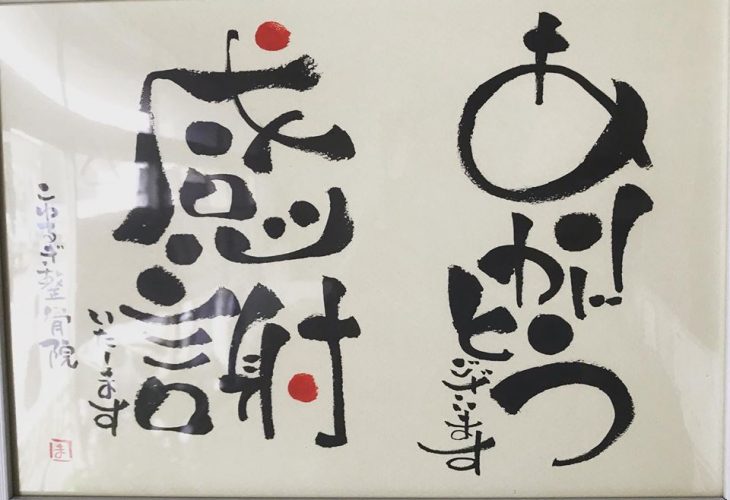 ありがとう
ございます
感謝
いたします
こやなぎ整骨院
ま